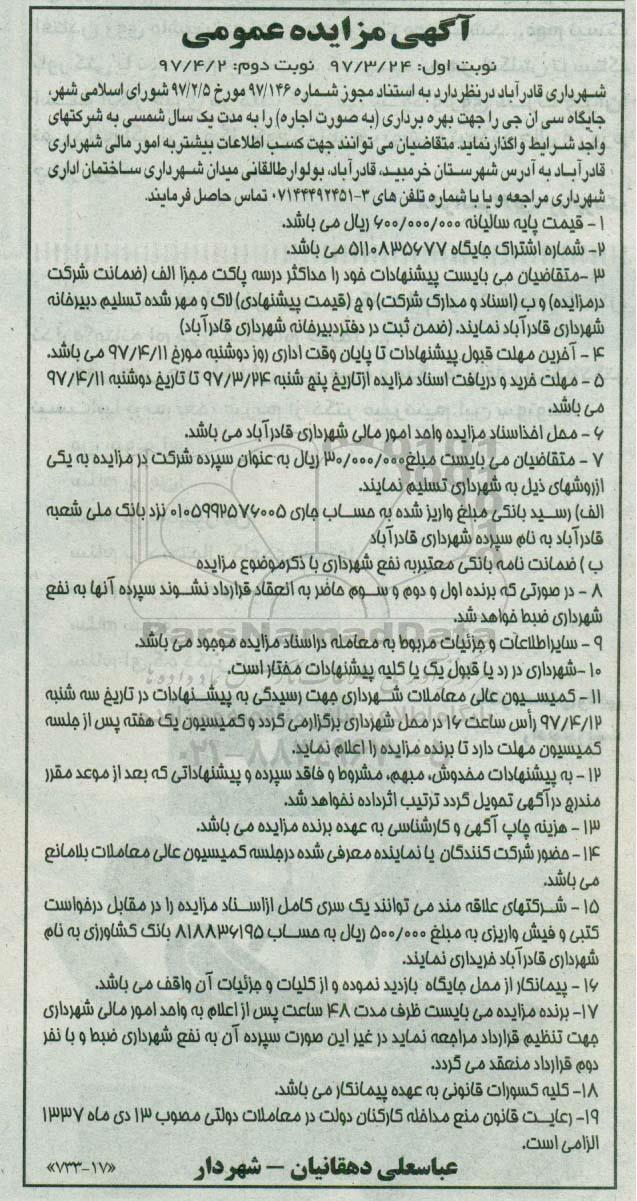 آگهی مزایده عمومی
نوبت اول: ۹۷/۳/۲۴ نوبت دوم: ۹۷/۴/۲
شهرداری قادرآباد درنظردارد به استناد مجوز شماره ۹۷/۱۴۶ مورخ ۹۷/۲/۵ شورای اسلامی شهر،
جایگاه سی ان جی را جهت بهره برداری (به صورت اجاره) را به مدت یک سال شمسی به شرکتهای
واجد شرایط واگذارنماید. متقاضیان می توانند جهت کسب اطلاعات بیشتربه امور مالی شهرداری
قادرآباد به آدرس شهرستان خرمبید، قادرآباد، بولوارطالقانی میدان شهرداری ساختمان اداری
شهرداری مراجعه و یا با شماره تلفن های ۳-۰۷۱۴۴۴۹۲۴۵۱ تماس حاصل فرمایند.
۱- قیمت پایه سالیانه ۶۰۰/۰۰۰/۰۰۰ ریال می باشد.
۲- شماره اشتراک جایگاه ۵۱۱۰۸۳۵۶۷۷ می باشد.
۳ -متقاضیان می بایست پیشنهادات خود را حداکثر درسه پاکت مجزا الف (ضمانت شرکت
درمزایده) و ب (اسناد و مدارک شرکت) و ج (قیمت پیشنهادی) لاک و مهر شده تسلیم دبیرخانه
شهرداری قادرآباد نمایند. (ضمن ثبت در دفتردبیرخانه شهرداری قادرآباد)
۴ - آخرین مهلت قبول پیشنهادات تا پایان وقت اداری روز دوشنبه مورخ ۹۷/۴/۱۱ می باشد.
۵ - مهلت خرید و دریافت اسناد مزایده ازتاریخ پنج شنبه ۹۷/۳/۲۴ تا تاریخ دوشنبه ۹۷/۴/۱۱
می باشد.
۶ - محل اخذاسناد مزایده واحد امور مالی شهرداری قادرآباد می باشد.
۷ - متقاضیان می بایست مبلغ ۳۰/۰۰۰/۰۰۰ ریال به عنوان سپرده شرکت در مزایده به یکی
ازروشهای ذیل به شهرداری تسلیم نمایند.
الف) رسید بانکی مبلغ واریز شده به حساب جاری ۰۱۰۵۹۹۲۵۷۶۰۰۵ نزد بانک ملی شعبه
قادرآباد به نام سپرده شهرداری قادرآباد
ب ) ضمانت نامه بانکی معتبربه نفع شهرداری با ذکرموضوع مزایده
۸ - در صورتی که برنده اول و دوم و سوم حاضر به انعقاد قرارداد نشوند سپرده آنها به نفع
شهرداری ضبط خواهد شد.
ParsNamadData
۹ - سایراطلاعات و جزئیات مربوط به معامله دراسناد مزایده موجود می باشد.
۱۰ -شهرداری در رد یا قبول یک یا کلیه پیشنهادات مختار است.
۱۱ - کمیسیون عالی معاملات شهرداری جهت رسیدگی به پیشنهادات در تاریخ سه شنبه
۹۷/۴/۱۲ رأس ساعت ۱۶ در محل شهرداری برگزارمی گردد و کمیسیون یک هفته پس از جلسه
کمیسیون مهلت دارد تا برنده مزایده را اعلام نماید.
۱۲ - به پیشنهادات مخدوش، مبهم، مشروط و فاقد سپرده و پیشنهاداتی که بعد از موعد مقرر
مندرج درآگهی تحویل گردد ترتیب اثرداده نخواهد شد.
۱۳ - هزینه چاپ آگهی و کارشناسی به عهده برنده مزایده می باشد.
۱۴ - حضور شرکت کنندگان یا نماینده معرفی شده درجلسه کمیسیون عالی معاملات بلامانع
می باشد.
۱۵ - شرکتهای علاقه مند می توانند یک سری کامل ازاسناد مزایده را در مقابل درخواست
کتبی و فیش واریزی به مبلغ ۵۰۰/۰۰۰ ریال به حساب ۸۱۸۸۳۶۱۹۵ بانک کشاورزی به نام
شهرداری قادرآباد خریداری نمایند.
۱۶ - پیمانکار از محل جایگاه بازدید نموده و از کلیات و جزئیات آن واقف می باشد.
۱۷- برنده مزایده می بایست ظرف مدت ۴۸ ساعت پس از اعلام به واحد امور مالی شهرداری
جهت تنظیم قرارداد مراجعه نماید در غیر این صورت سپرده آن به نفع شهرداری ضبط و با نفر
دوم قرارداد منعقد می گردد.
۱۸- کلیه کسورات قانونی به عهده پیمانکار می باشد.
۱۹- رعایت قانون منع مداخله کارکنان دولت در معاملات دولتی مصوب ۱۳ دی ماه ۱۳۳۷
الزامی است.
عباسعلی دهقانیان – شهردار
«۷۳۳-۱۷»